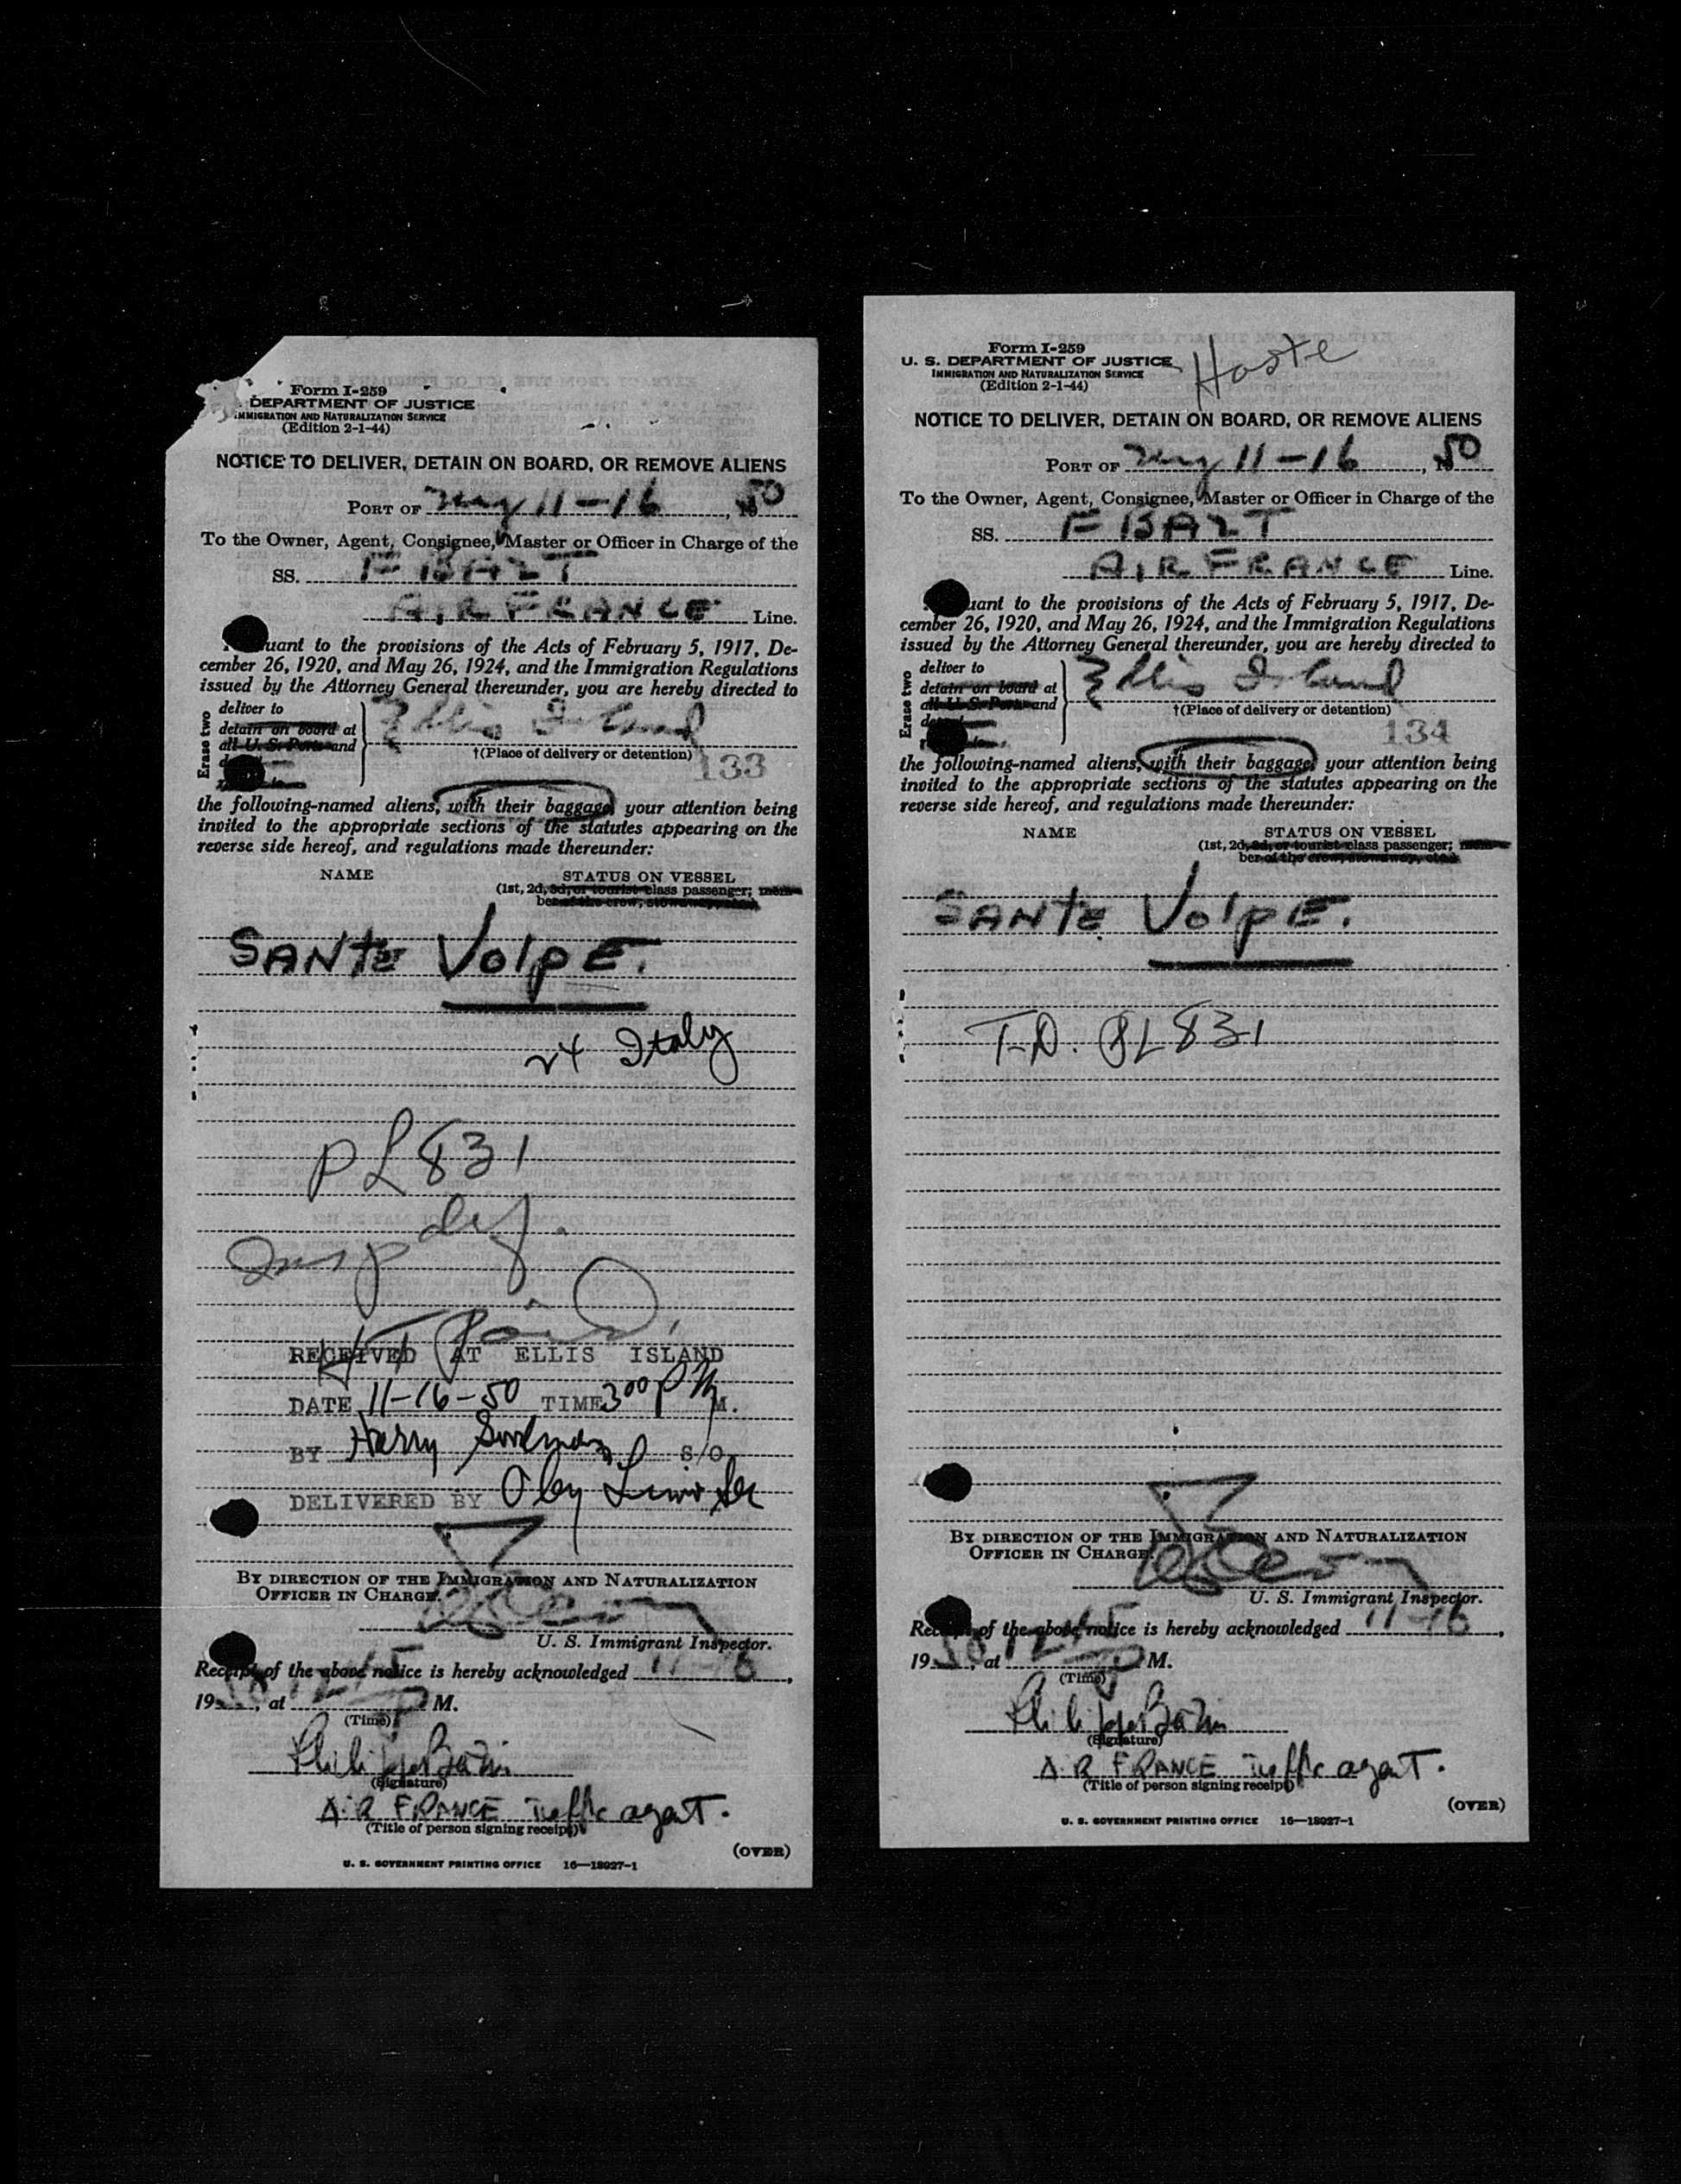 Form I-259
DEPARTMENT OF JUSTICE
IMMIGRATION AND NATURALIZATION SERVICE
(Edition 2-1-44)
NOTICE TO DELIVER, DETAIN ON BOARD, OR REMOVE ALIENS
PORT OF 11-16, 1950
To the Owner, Agent, Consignee, Master or Officer in Charge of the
SS. F BAZT
AIR FRANCE Line.
uant to the provisions of the Acts of February 5, 1917, De-
cember 26, 1920, and May 26, 1924, and the Immigration Regulations
issued by the Attorney General thereunder, you are hereby directed to
Erase two
deliver to
detain on board at
all U. S. Ports and
Ellis Island
†(Place of delivery or detention)
133
the following-named aliens, with their baggage, your attention being
invited to the appropriate sections of the statutes appearing on the
reverse side hereof, and regulations made thereunder:
NAME STATUS ON VESSEL
(1st, 2d, 3d, or tourist class passenger; mem-
ber of the crew, stowaway, etc.)
SANTE VOLPE.
24 Italy
PL 831
Insp
RECEIVED AT ELLIS ISLAND
DATE 11-16-50 TIME 3 00 P M.
BY Harry S/O
DELIVERED BY
BY DIRECTION OF THE IMMIGRATION AND NATURALIZATION
OFFICER IN CHARGE.
U. S. Immigrant Inspector.
Receipt of the above notice is hereby acknowledged 11-16,
1950, at M.
(Time)
(Signature)
AIR FRANCE Traffic agent.
(Title of person signing receipt)
(OVER)
U. S. GOVERNMENT PRINTING OFFICE 16—18027-1
Form I-259
U. S. DEPARTMENT OF JUSTICE
IMMIGRATION AND NATURALIZATION SERVICE
(Edition 2-1-44)
NOTICE TO DELIVER, DETAIN ON BOARD, OR REMOVE ALIENS
PORT OF 11-16, 1950
To the Owner, Agent, Consignee, Master or Officer in Charge of the
SS. F BAZT
AIR FRANCE Line.
uant to the provisions of the Acts of February 5, 1917, De-
cember 26, 1920, and May 26, 1924, and the Immigration Regulations
issued by the Attorney General thereunder, you are hereby directed to
Erase two
deliver to
detain on board at
all U. S. Ports and
Ellis Island
†(Place of delivery or detention)
134
the following-named aliens, with their baggage, your attention being
invited to the appropriate sections of the statutes appearing on the
reverse side hereof, and regulations made thereunder:
NAME STATUS ON VESSEL
(1st, 2d, 3d, or tourist class passenger; mem-
ber of the crew, stowaway, etc.)
SANTE VOLPE.
T.D. PL 831
BY DIRECTION OF THE IMMIGRATION AND NATURALIZATION
OFFICER IN CHARGE.
U. S. Immigrant Inspector.
Receipt of the above notice is hereby acknowledged 11-16,
1950, at M.
(Time)
(Signature)
AIR FRANCE Traffic agent.
(Title of person signing receipt)
(OVER)
U. S. GOVERNMENT PRINTING OFFICE 16—18027-1